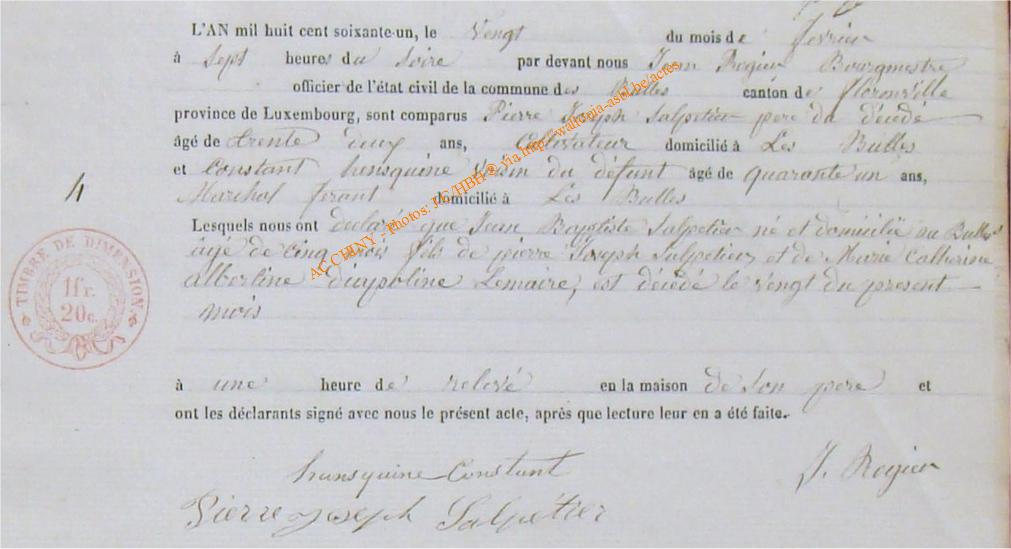 L'AN mil huit cent soixante-un, le Vengt du mois de fevrier
à Sept heures du Soire par devant nous Jean Rogier Bourgmestre
officier de l'état civil de la commune des Bulles canton de florenville
province de Luxembourg, sont comparus Pierre Joseph Salpetier pere du décédé
âgé de trente deux ans, Cultivateur domicilié à Les Bulles
et Constant hensquine Voisin du défunt âgé de quarante un ans,
4
Marchal ferant domicilié à Les Bulles
Lesquels nous ont declaré que Jean Baptiste Salpetier né et domicilié au Bulles
âgé de Cinq mois fils de pierre Joseph Salpetier et de Marie Catherine
albertine Lemaire, est décédé le vengt du present
mois
TIMBRE DE DIMENSION
1 fr.
20 c.
à une heure de relevé en la maison de son pere et
ont les déclarants signé avec nous le présent acte, après que lecture leur en a été faite.
hansquine Constant J. Rogier
Pierre Joseph Salpétier
AC CHINY - Photos: JLC/HBH @ via http://wallonia-asbl.be/actes